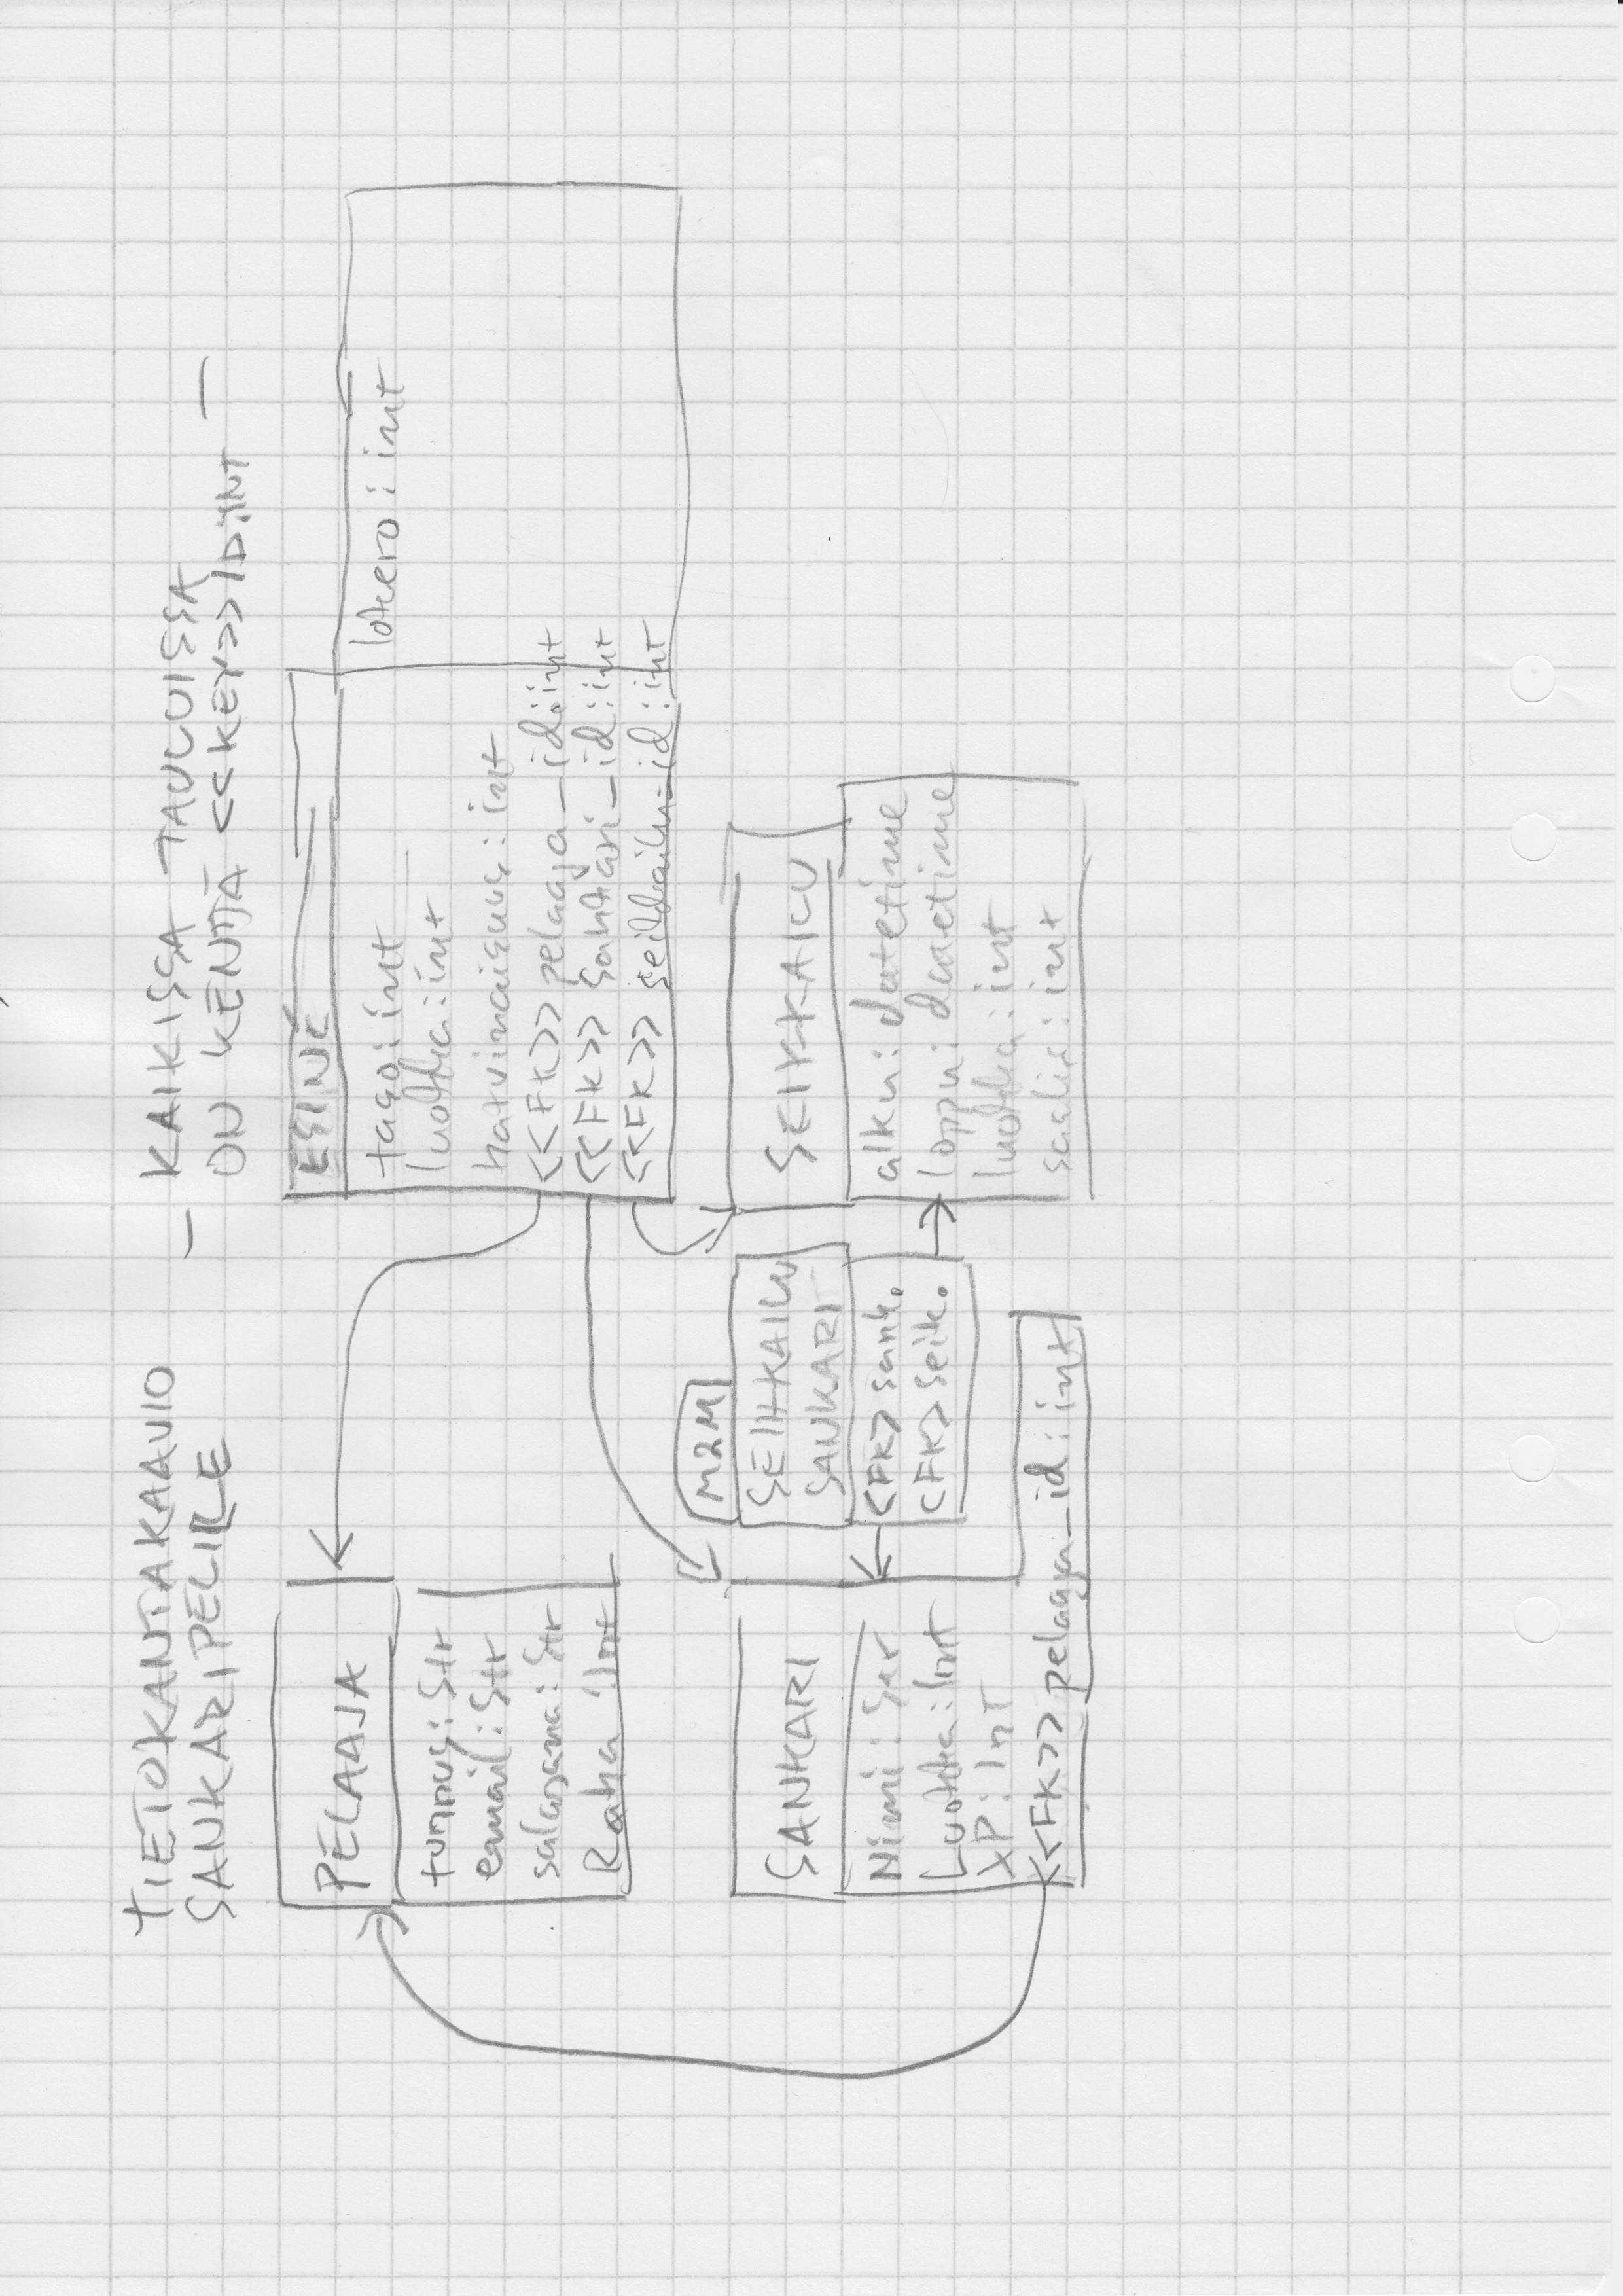 TIETOKANTAKAAVIO
SANKARIPELILLE
– KAIKISSA TAULUISSA
ON KENTTÄ <<KEY>> ID:INT –
PELAAJA
tunnus: Str
email: Str
salasana: Str
Raha: Int
ESINE
taso: int
luokka: int
harvinaisuus: int
<<FK>> pelaaja_id: int
<<FK>> sankari_id: int
<<FK>> seikkailu_id: int
lokero: int
SANKARI
Nimi: Str
Luokka: Int
XP: Int
<<FK>> pelaaja_id: int
M2M
SEIKKAILU
SANKARI
<FK> sank.
<FK> seik.
SEIKKAILU
alku: datetime
loppu: datetime
luokka: int
saalis: int